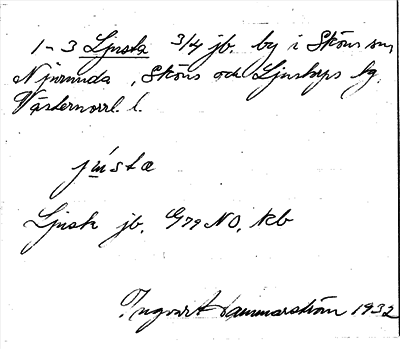 1-3 Ljusta 3/4 jb. by i Sköns sn
Njurunda, Sköns och Ljustorps tg,
Västernorrl. l.
jústa
Ljusta jb. G79 NO, kb
Ingvart Hammarström 1932